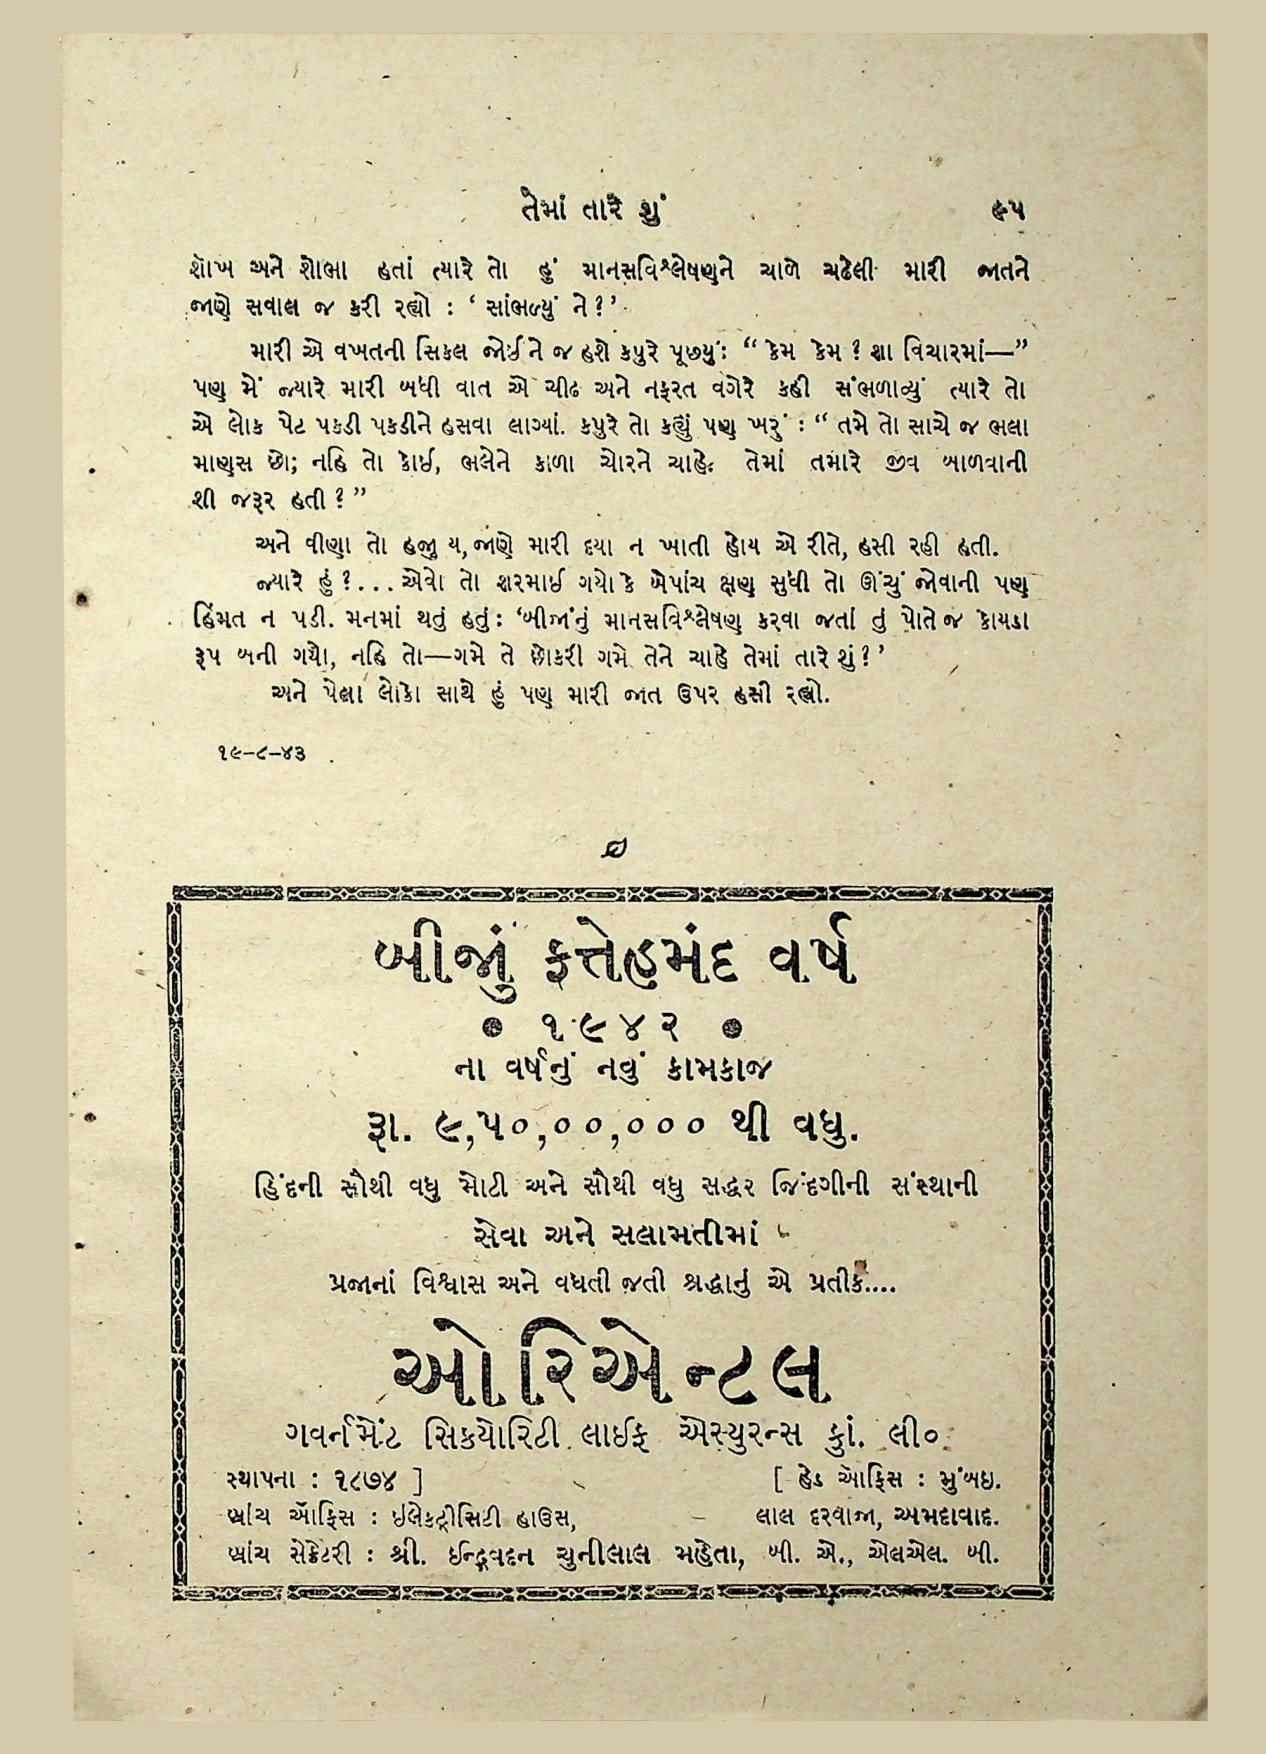 તેમાં તારે શું ૯૫
શૉખ અને શોભા હતાં ત્યારે તો હું માનસવિશ્લેષણને ચાળે ચઢેલી મારી જાતને
જાણે સવાલ જ કરી રહ્યો : ‘ સાંભળ્યું ને?’
મારી એ વખતની સિકલ જોઈને જ હશે કપુરે પૂછ્યું: “ કેમ કેમ ? શા વિચારમાં—”
પણ મેં જ્યારે મારી બધી વાત એ ચીઢ અને નફરત વગેરે કહી સંભળાવ્યું ત્યારે તો
એ લોક પેટ પકડી પકડીને હસવા લાગ્યાં. કપુરે તો કહ્યું પણ ખરું : “ તમે તો સાચે જ ભલા
માણસ છો; નહિ તો કોઈ, ભલેને કાળા ચોરને ચાહે; તેમાં તમારે જીવ બાળવાની
શી જરૂર હતી ? ”
અને વીણા તો હજુ ય, જાણે મારી દયા ન ખાતી હોય એ રીતે, હસી રહી હતી.
જ્યારે હું ?... એવો તો શરમાઈ ગયો કે બેપાંચ ક્ષણ સુધી તો ઊંચું જોવાની પણ
હિંમત ન પડી. મનમાં થતું હતું : ‘બીજાંનું માનસવિશ્લેષણ કરવા જતાં તું પોતે જ કોયડા
રૂપ બની ગયો, નહિ તો—ગમે તે છોકરી ગમે તેને ચાહે તેમાં તારે શું ? ’
અને પેલા લોકો સાથે હું પણ મારી જાત ઉપર હસી રહ્યો.
૧૯–૮–૪૩
બીજાું ફત્તેહમંદ વર્ષ
● ૧૯૪૨ ●
ના વર્ષનું નવું કામકાજ
રૂા. ૯,૫૦,૦૦,૦૦૦ થી વધુ.
હિંદની સૌથી વધુ મોટી અને સૌથી વધુ સદ્ધર જિંદગીની સંસ્થાની
સેવા અને સલામતીમાં
પ્રજાનાં વિશ્વાસ અને વધતી જતી શ્રદ્ધાનું એ પ્રતીક....
ઓરિએન્ટલ
ગવર્નમેંટ સિકયોરિટી લાઈફ એસ્યુરન્સ કુાં. લી૦
સ્થાપના : ૧૮૭૪ ] [ હેડ ઑફિસ : મુંબઇ.
બ્રાંચ ઑફિસ : ઇલેકટ્રીસિટી હાઉસ, લાલ દરવાજા, અમદાવાદ.
બ્રાંચ સેક્રેટરી : શ્રી. ઈન્દ્રવદન ચુનીલાલ મહેતા, બી. એ., એલએલ. બી.